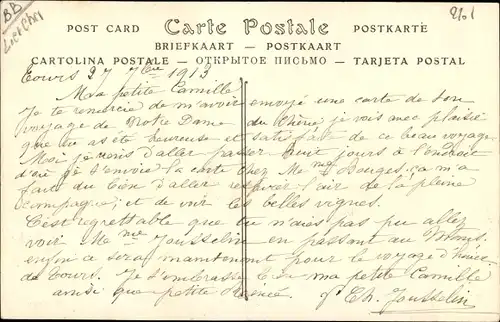 BB
POST CARD Carte Postale POSTKARTE
BRIEFKAART — POSTKAART
CARTOLINA POSTALE — ОТКРЫТОЕ ПИСЬМО — TARJETA POSTAL
Tours 27 7bre 1913
Ma petite Camille
Je te remercie de m'avoir envoyé une carte de ton
voyage de Notre Dame du Chêne je vois avec plaisir
que tu as été heureuse et satisfaite de ce beau voyage
Moi je viens d'aller passer huit jours à l'endroit
d'où je t'envoie la carte chez Me Bouges ça m'a
fait du bien d'aller respirer l'air de la pleine
campagne, et de voir les belles vignes.
C'est regrettable que tu n'aies pas pu aller
voir Mme Jousselin en passant au Mans
enfin ce sera maintenant pour le voyage
de Tours. Je t'embrasse bien ma petite Camille
ainsi que petite
Th. Jousselin